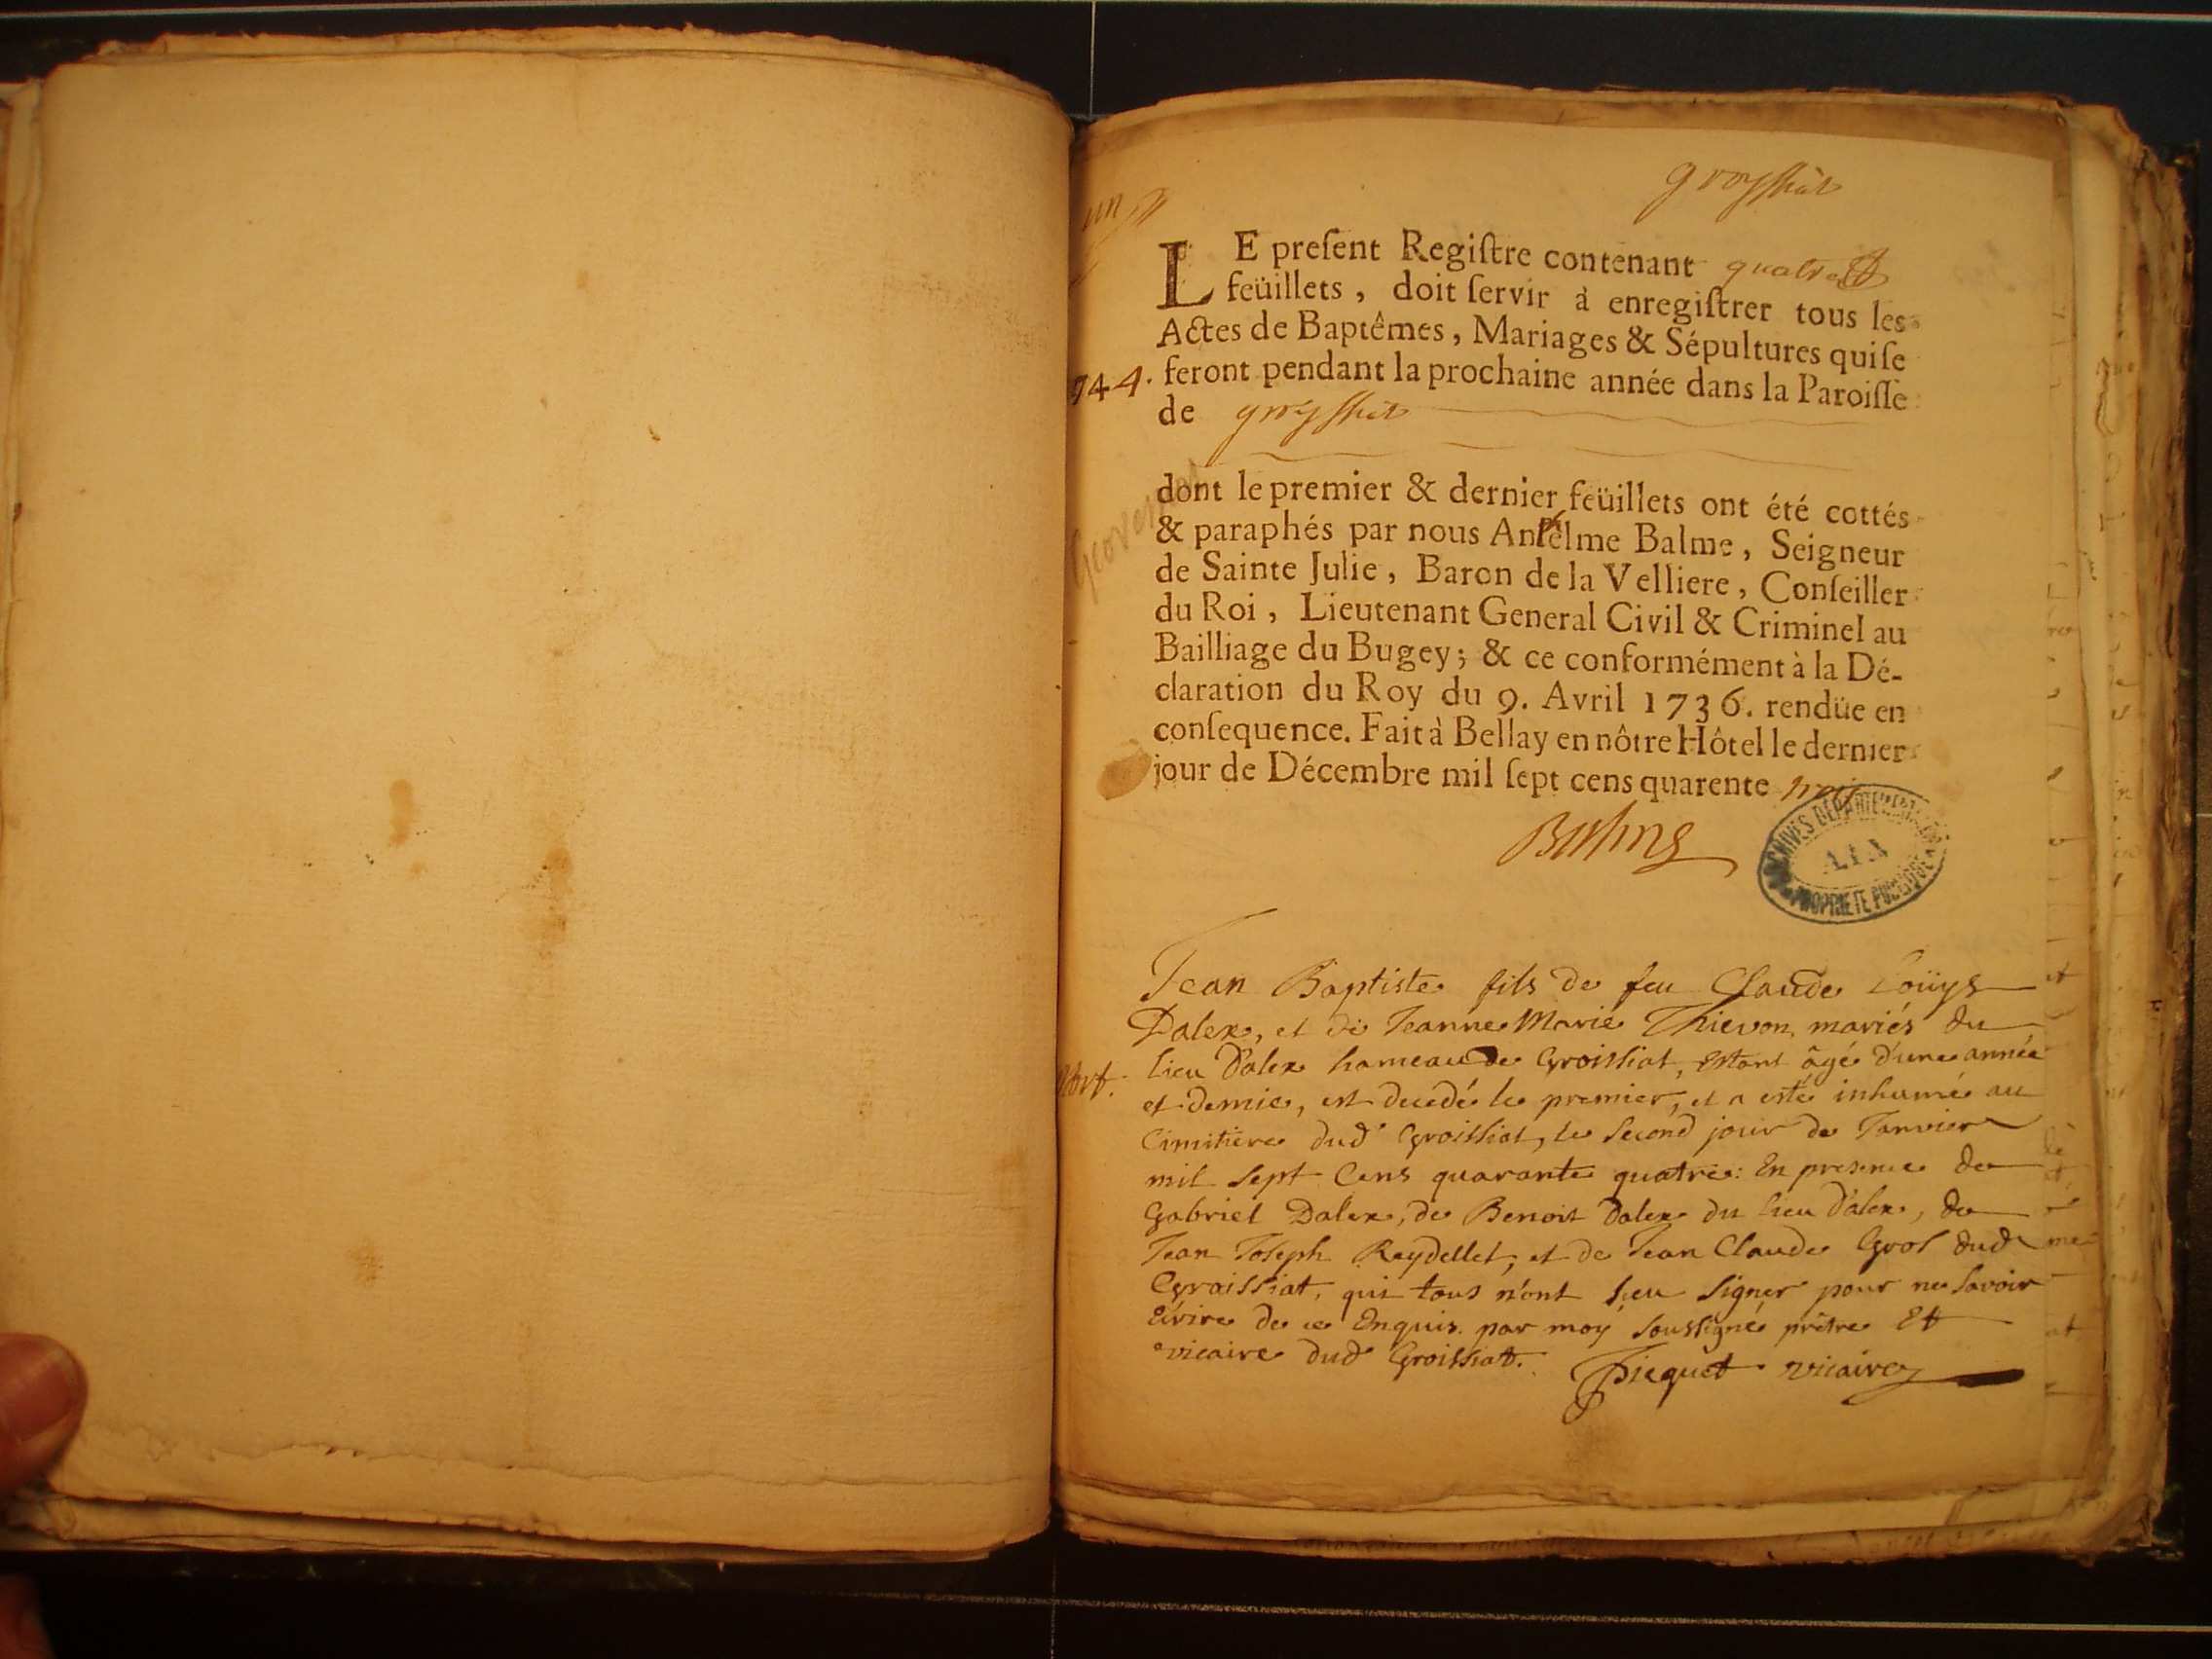 groyssiat
un
LE preſent Regiſtre contenant quatre
feüillets, doit ſervir à enregiſtrer tous les
Actes de Baptêmes, Mariages & Sépultures qui ſe
744. feront pendant la prochaine année dans la Paroiſſe
de groyssiat
dont le premier & dernier feüillets ont été cottés
& paraphés par nous Anſelme Balme, Seigneur
de Sainte Julie, Baron de la Velliere, Conſeiller
du Roi, Lieutenant General Civil & Criminel au
Bailliage du Bugey; & ce conformément à la Dé-
claration du Roy du 9. Avril 1736. rendüe en
conſequence. Fait à Bellay en nôtre Hôtel le dernier
jour de Décembre mil ſept cens quarente trois
Balme
ARCHIVES DEPARTEMENTALES
AIN
PROPRIETE PUBLIQUE
Jean Baptiste fils de feu Claude Loüys
Dalex, et de Jeanne Marie Thievon mariés du
lieu Dalex hameau de Groissiat, Estant âgé d'une année
Mort. et demie, est decedé le premier, et a esté inhumé au
Cimitière dud' Groissiat, le second jour de Janvier
mil sept cens quarante quatre: En presence de
Gabriel Dalex, de Benoit Dalex du lieu Dalex, de
Jean Joseph Reydellet, et de Jean Claude Gros dud
Groissiat, qui tous n'ont sceu signer pour ne savoir
Ecrire de ce Enquis par moy soussigné prêtre Et
vicaire dud' Groissiat. Picquet vicaire